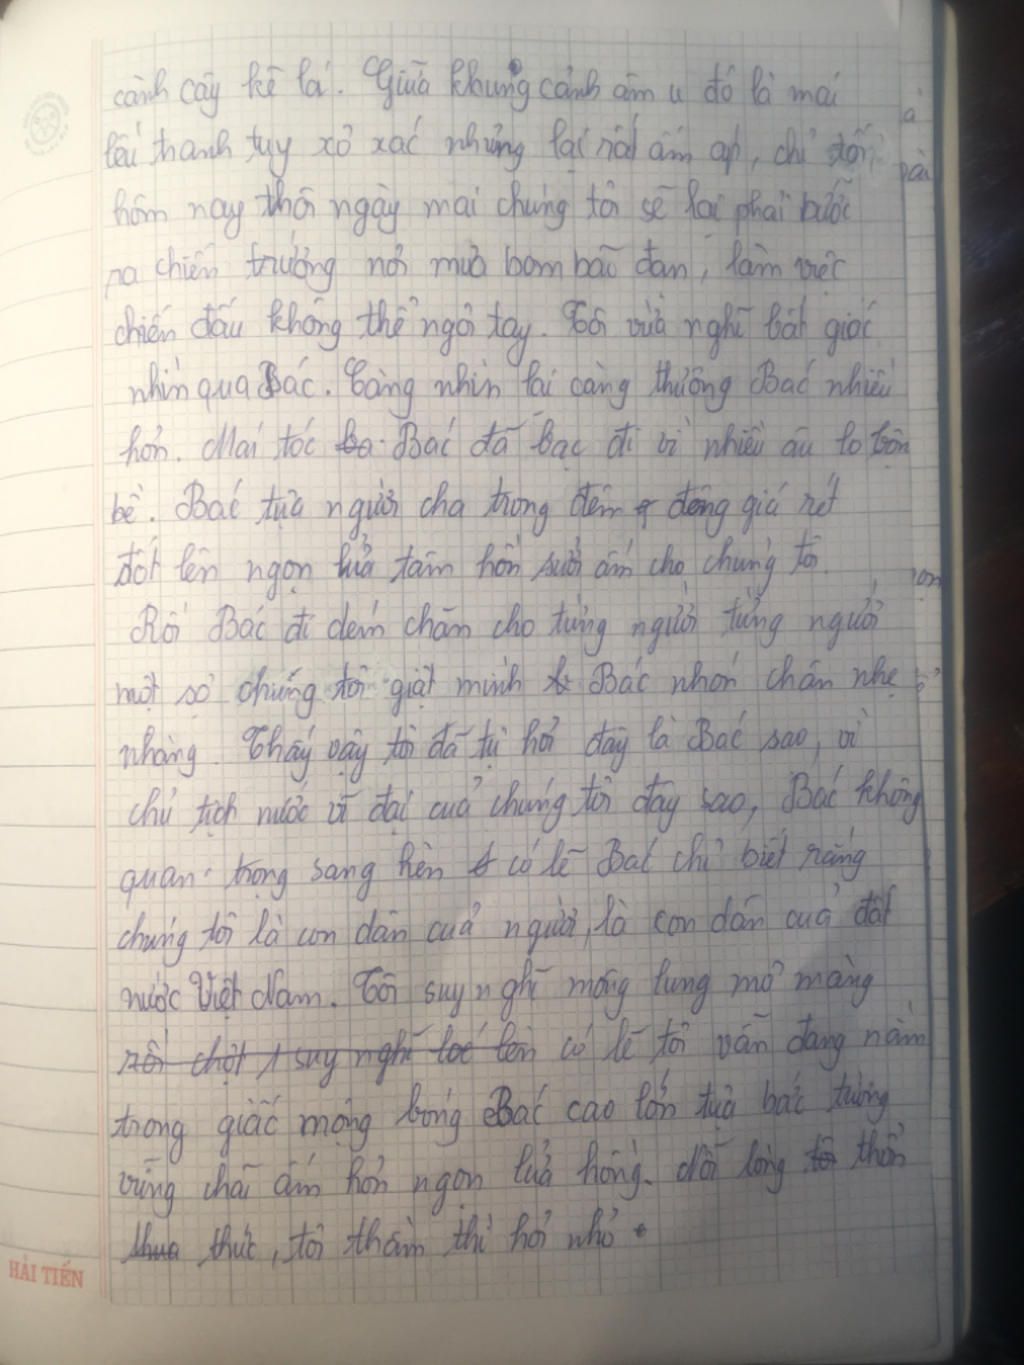 cành cây kẽ lá. Giữa khung cảnh âm u đó là mái
lều tranh tuy xơ xác nhưng lại rất ấm áp, chỉ tối
hôm nay thôi ngày mai chúng tôi sẽ lại phải bước
ra chiến trường nơi mưa bom bão đạn, làm việc
chiến đấu không thể ngơi tay. Tôi vừa nghĩ bất giác
nhìn qua Bác. Càng nhìn lại càng thương Bác nhiều
hơn. Mái tóc Bác đã bạc đi vì nhiều âu lo bộn
bề. Bác tựa người cha trong đêm đông giá rét
đốt lên ngọn lửa tâm hồn sưởi ấm cho chúng tôi.
Rồi Bác đi dém chăn cho từng người từng người
một sợ chúng tôi giật mình Bác nhón chân nhẹ
nhàng. Thấy vậy tôi đã tự hỏi đây là Bác sao, vì
chủ tịch nước vĩ đại cuả chúng tôi đây sao, Bác không
quan trọng sang hèn có lẽ Bác chỉ biết rằng
chúng tôi là con dân cuả người, là con dân cuả đất
nước Việt Nam. Tôi suy nghĩ mông lung mơ màng
rồi chợt suy nghĩ loé lên có lẽ tôi vẫn đang nằm
trong giấc mộng bóng Bác cao lớn tựa bức tường
vững chãi ấm hơn ngọn lửa hồng. Nỗi lòng thổn
thức, tôi thầm thì hỏi nhỏ
HẢI TIẾN